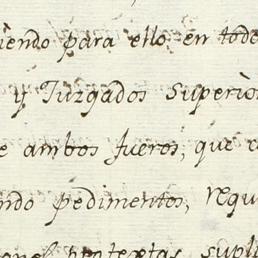 iendo para ello en todo
y Juzgados Superio
e ambos fueros, que c
ndo pedimentos, requ
protextas, supli